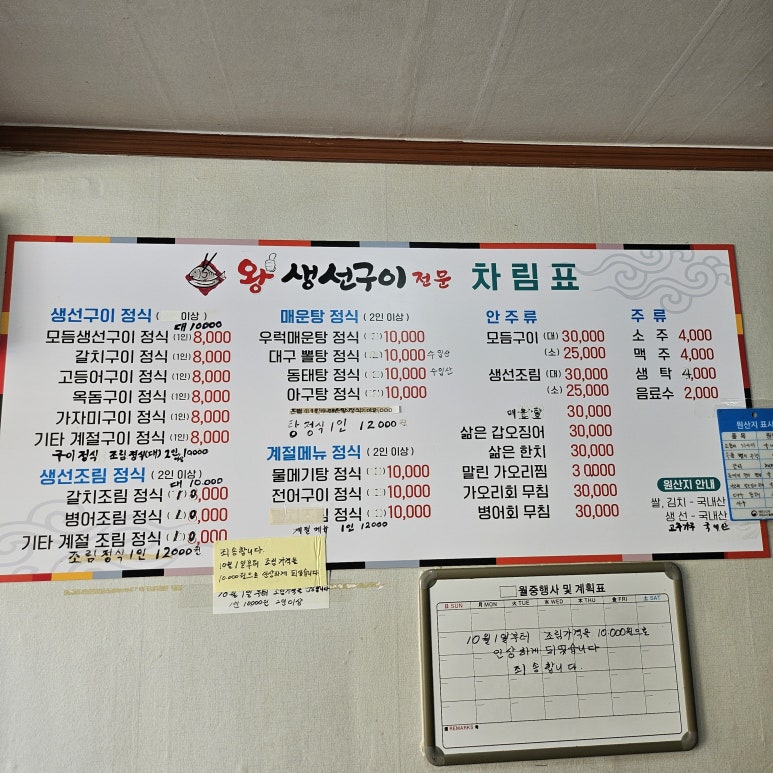 왕 생선구이 전문 차림표
생선구이 정식 ( 이상)
대 10000
모듬생선구이 정식 (1인) 8,000
갈치구이 정식 (1인) 8,000
고등어구이 정식 (1인) 8,000
옥돔구이 정식 (1인) 8,000
가자미구이 정식 (1인) 8,000
기타 계절구이 정식 (1인) 8,000
구이 정식 조림 정식(대) 2인 10000
생선조림 정식 (2인 이상)
대 10000
갈치조림 정식 10,000
병어조림 정식 10,000
기타 계절 조림 정식 10,000
조림 정식 1인 12000원
매운탕 정식 (2인 이상)
우럭매운탕 정식 10,000
대구 뽈탕 정식 10,000 수입산
동태탕 정식 10,000 수입산
아구탕 정식 10,000
탕 정식 1인 12000원
계절메뉴 정식 (2인 이상)
물메기탕 정식 10,000
전어구이 정식 10,000
정식 10,000
계절 메뉴 1인 12000
안주류
모듬구이 (대) 30,000
(소) 25,000
생선조림 (대) 30,000
(소) 25,000
매운탕 30,000
삶은 갑오징어 30,000
삶은 한치 30,000
말린 가오리찜 30,000
가오리회 무침 30,000
병어회 무침 30,000
주류
소주 4,000
맥주 4,000
생탁 4,000
음료수 2,000
원산지 안내
쌀, 김치 - 국내산
생선 - 국내산
고추가루 국내산
원산지 표시
죄송합니다.
10월 1일부터 조림가격을
10.000원으로 인상하게 되었습니다
10월 1일부터 조림가격을
1인 10000원 2인이상
월중행사 및 계획표
日 SUN 月 MON 火 TUE 水 WED 木 THU 金 FRI 土 SAT
10월 1일부터 조림가격을 10.000원으로
인상하게 되었습니다
죄송합니다.
REMARKS